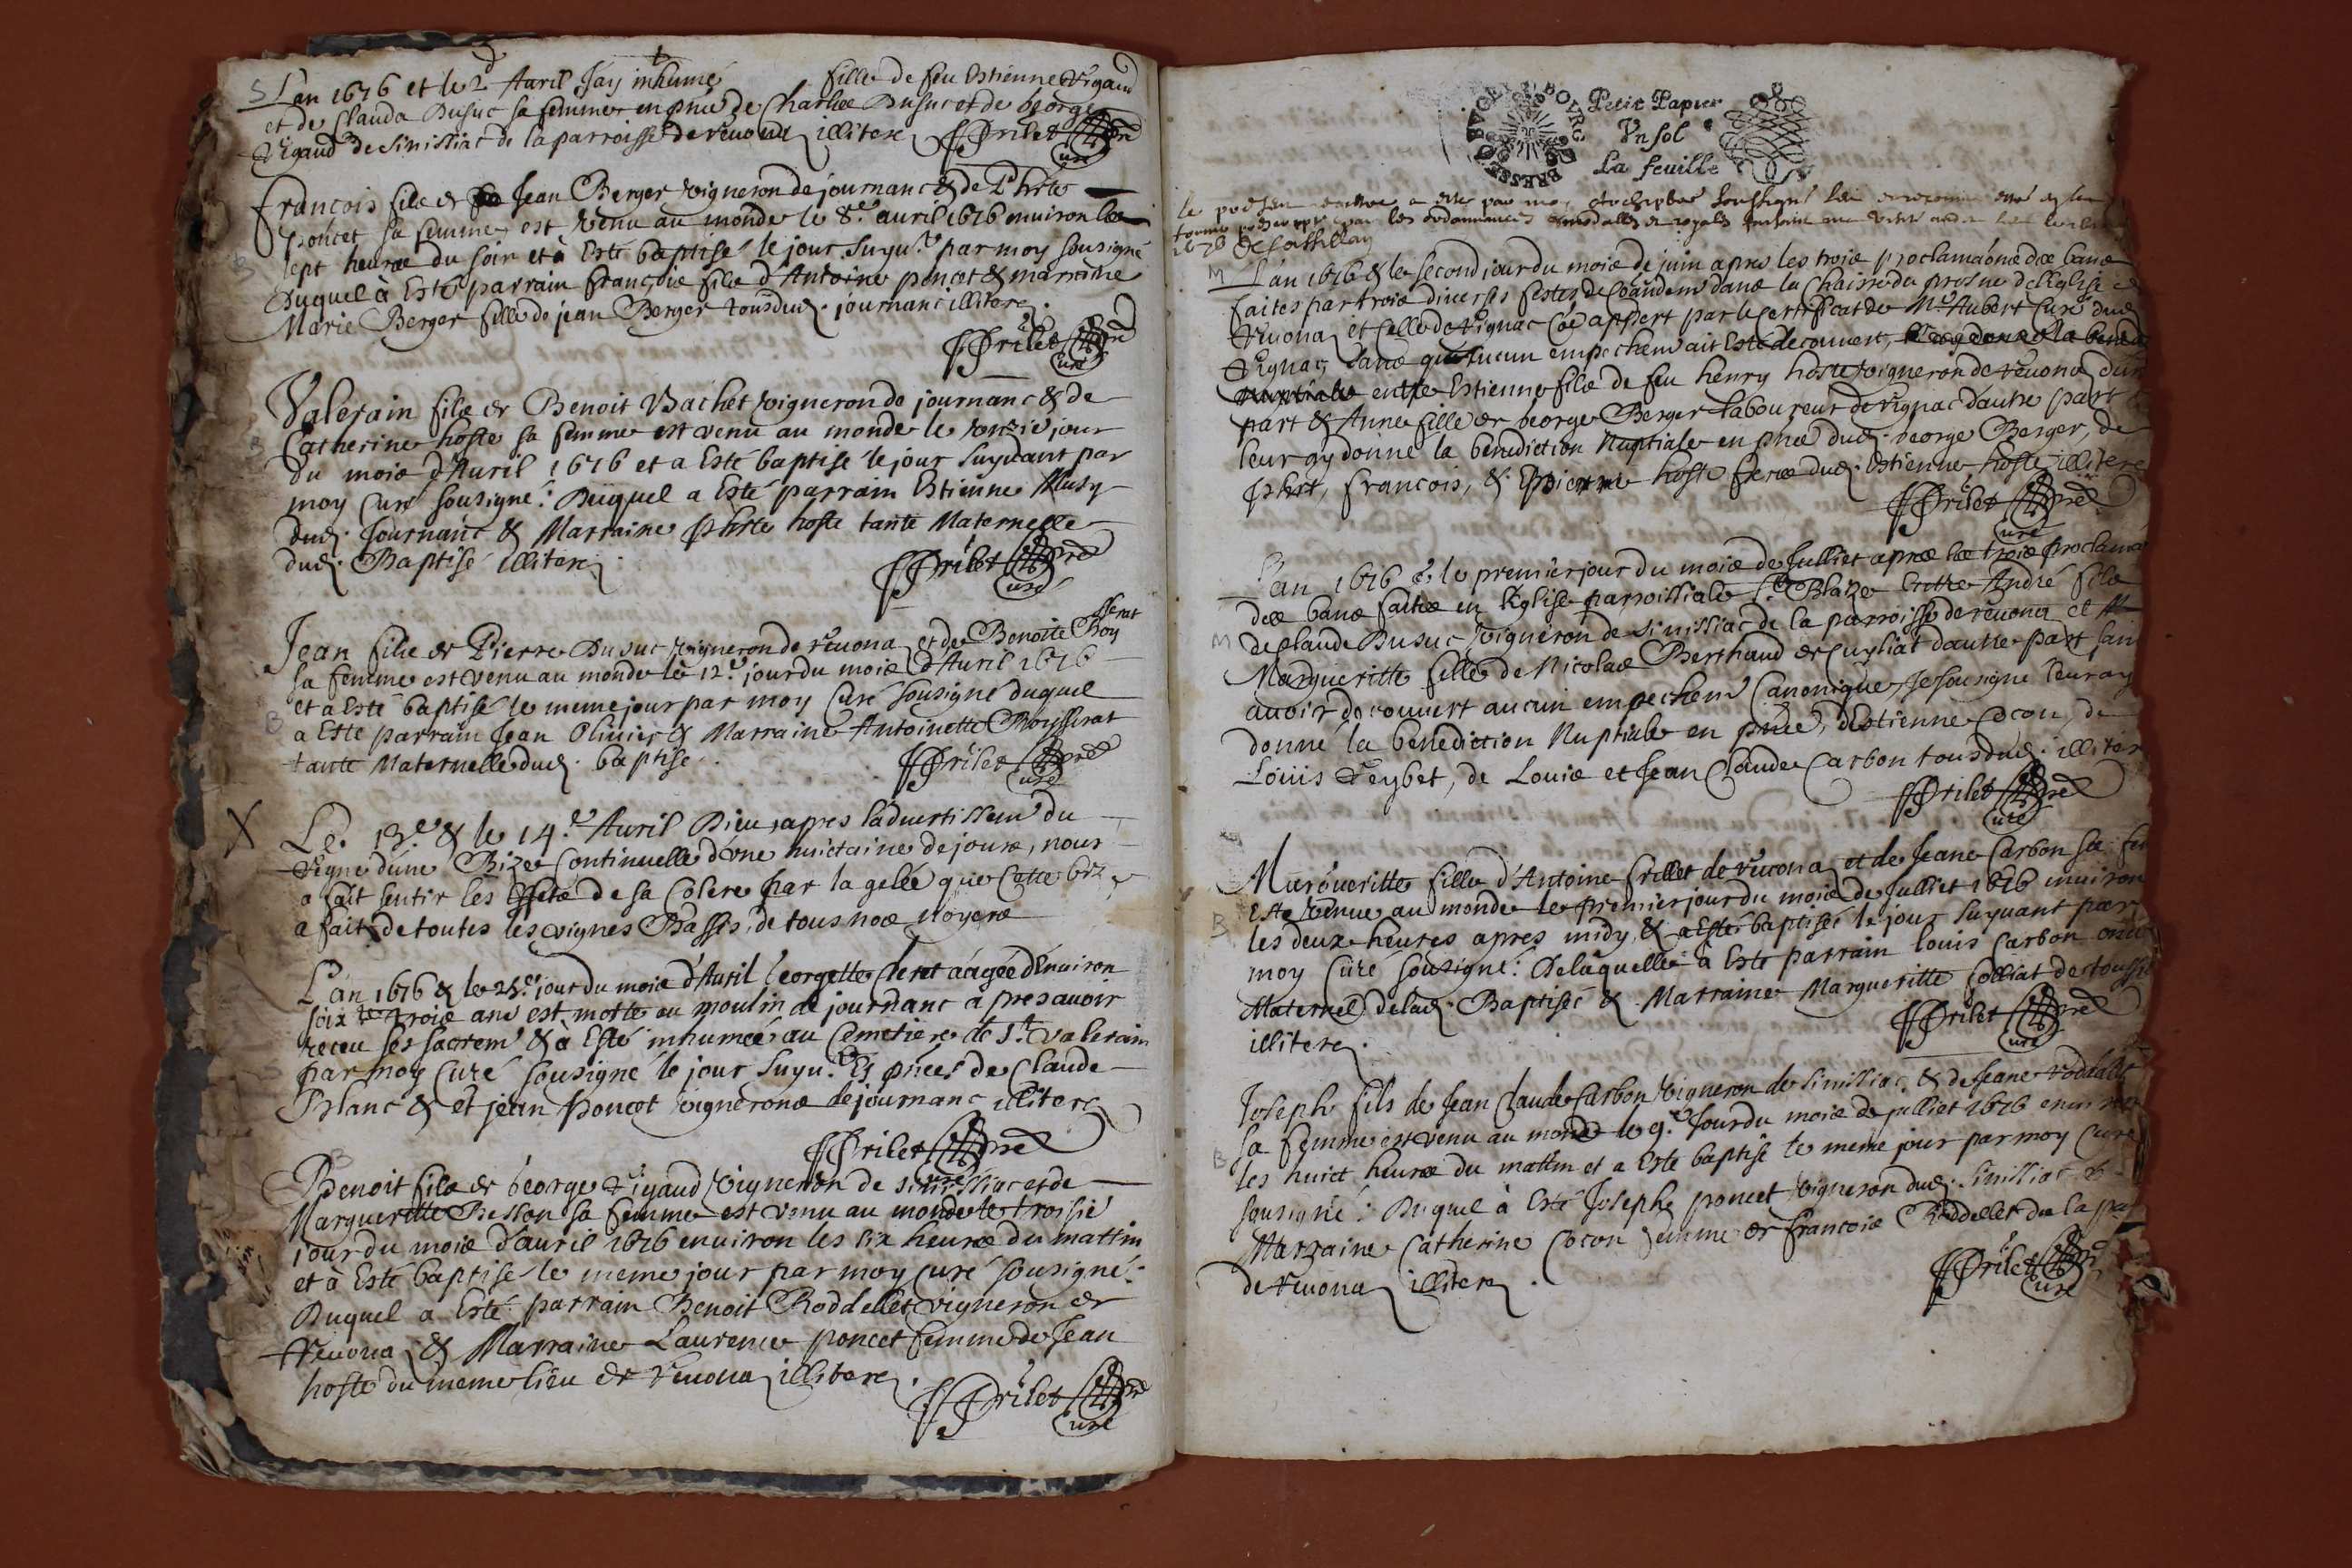 S L'an 1676 et le 2 d Auril J'ay inhumé fille de feu Estienne Vigaud
et de Clauda Dusuc sa femme en pñce de Charles Dusuc et de George
Vigaud de Simissiac de la parroisse de reuona illitere JJ Brilet pre
Curé
francois fils de Jean Berger vigneron de journanc & de Phte
poncet sa femme est venu au monde le 8.e auril 1676 enuiron les
sept heures du soir et à Esté baptisé le jour suyu.t par moy sousigné
B
Duquel à Esté parrain françois fils d'Antoine poncet & marraine
Marie Berger fille de jean Berger tous dud. journanc illitere.
JJ Brilet pre
Curé
Valerain fils de Benoit Vachet vigneron de journanc & de
B Catherine hoste sa femme est venu au monde le onzie jour
du mois d'Auril 1676 et a Esté baptisé le jour suyuant par
moy Curé sousigné: Duquel a Esté parrain Estienne Musy
dud. Journanc & Marraine phte hoste tante Maternelle
dud. Baptisé illitere
JJ Brilet pre
Curé
Jean fils de Pierre Dusuc vigneron de reuona et de Benoite Boysserat
sa femme est venu au monde le 12.e jour du mois d'Auril 1676
et a Esté baptisé le meme jour par moy Curé sousigné duquel
B a Esté parrain Jean Oliuier & Marraine Antoinette Boysserat
tante Maternelle dud. baptisé.
JJ Brilet pre
Curé
X Le 13.e & le 14.e Auril Dieu apres l'aduertissem.t du
regne d'une Bize Continuelle d'vne huictaine de jours, nous
a fait sentir les Effets de sa Colere par la gelée que Cette bize
a fait de toutes les vignes Basses, de tous nos noyers
L'an 1676 & le 25.e jour du mois d'Auril Georgette Cleret aagée d'Enuiron
soix.te trois ans est morte au moulin de journanc apres auoir
receu ses sacrem.t & à Esté inhumée au Cemetiere de S.t Valerain
par moy Curé sousigné le jour suyu.t Es pñces de Claude
Blanc & et jean Poncet vignerons de journanc illitere
JJ Brilet pre
Curé
B
Benoit fils de George Vigaud Vigneron de simissiac et de
Margueritte Besson sa femme est venu au monde le troisie
jour du mois d'auril 1676 enuiron les six heures du mattin
et à Esté baptisé le meme jour par moy Curé sousigné:
Duquel a Esté parrain Benoit Roddellet vigneron de
Reuona & Marraine Laurence poncet femme de Jean
hoste du meme lieu de reuona illitere.
JJ Brilet pre
Curé
BOVRG
BRESSE
BVGEY
Petit Papier
Vn sol
La feuille
le par moy
par les ordonnances
1676
M L'an 1676 & le second jour du mois de juin apres les trois proclamaõns des bans
faites par trois diuerses festes de Coãndem.t dans la Chaisre du prosne de l'Eglise de
reuona et Celle de Vignac Coe appert par le Certificat de M.r Aubert Curé dud.
Vignac, sans que aucun empechem.t ait Esté decouuert,
entre Estienne fils de feu henry hoste vigneron de reuona d'une
part & Anne fille de George Berger laboureur de Vignac d'autre part
leur ay donné la benediction Nuptiale en pñce dud. George Berger, de
phrt, francois, & hoste freres dud. Estienne hoste illitere
JJ Brilet pre
Curé
L'an 1676 & le premier jour du mois de Julliet apres les trois proclama
des bans faites en l'Eglise parroissiale S.t Blaize Entre André fils
M de Claude Dusuc Vigneron de simissiac de la parroisse de reuona et
Margueritte fille de Nicolas Berthaud de Cuyliat d'autre part san
auoir decouuert aucun empechem.t Canonique, Je sousigné leur ay
donné la benediction Nuptiale en pñce, d'Estienne Cocon, de
Louis Veybet, de Louis et Jean Claude Carbon tous dud. illiter
JJ Brilet pre
Curé
Margueritte fille d'Antoine Crillet de reuona et de Jeane Carbon sa fem
Este venue au monde le premier jour du mois de Julliet 1676 enuiron
B les deux heures apres midy & a Esté baptisée le jour suyuant par
moy Curé sousigné: De laquelle a Esté parrain louis Carbon oncle
Maternel de lad. Baptisée & Marraine Margueritte Colliat de
illitere.
JJ Brilet pre
Curé
Joseph fils de Jean Claude Carbon vigneron de simissiac, & de Jeane roddellet
sa femme est venu au monde le 9.e Jour du mois de julliet 1676 enuiron
B les huict heures du mattin et a Esté baptisé le meme jour par moy Curé
sousigné: Duquel à Esté Joseph poncet vigneron dud. simissiac &
Marraine Catherine Cocon femme de francois Roddellet de la par
de reuona illitere.
JJ Brilet pre
Curé